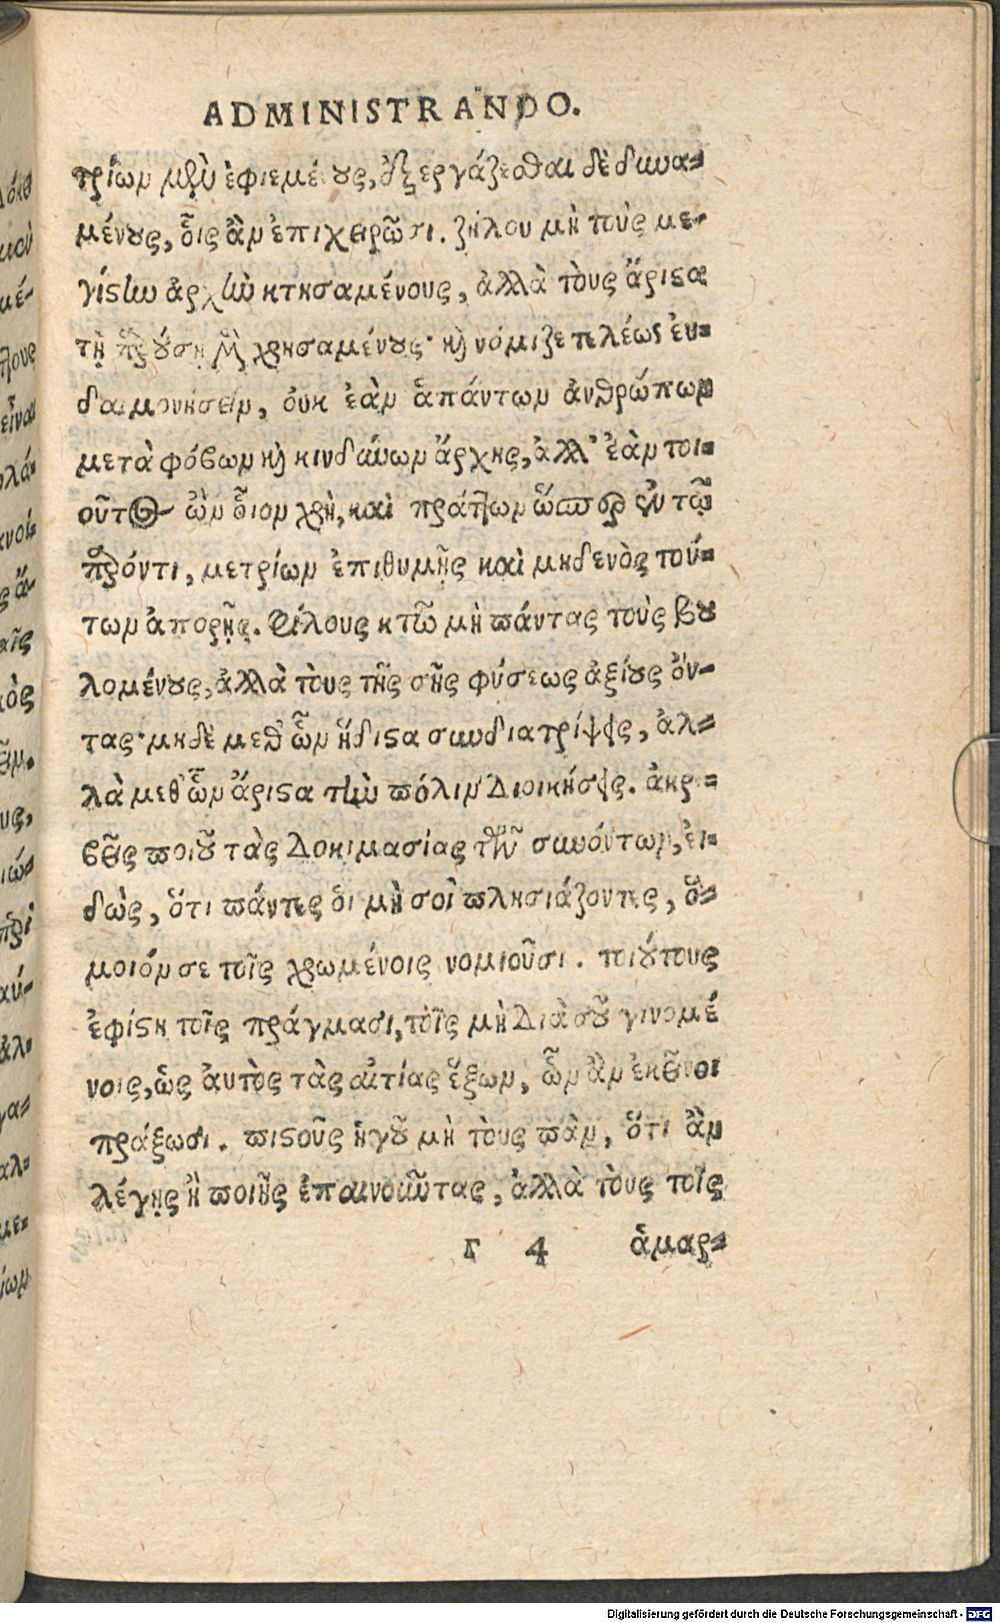 ADMINISTRANDO.
τρίων μὲν ἐφιεμένους, ἐξεργάζεσθαι δὲ δυνα-
μένους, οἷς ἂν ἐπιχειρῶσι. ζήλου μὴ τοὺς με-
γίστην ἀρχὴν κτησαμένους, ἀλλὰ τοὺς ἄριστα
τῇ παρούσῃ χρησαμένους· καὶ νόμιζε τελέως εὐ-
δαιμονήσειν, οὐκ ἐὰν ἁπάντων ἀνθρώπων
μετὰ φόβων καὶ κινδύνων ἄρχῃς, ἀλλ' ἐὰν τοι-
οῦτος ὢν οἷον χρὴ, καὶ πράττων ὥσπερ ἐν τῷ
παρόντι, μετρίων ἐπιθυμῇς καὶ μηδενὸς τού-
των ἀπορῇς. Φίλους κτῶ μὴ πάντας τοὺς βου
λομένους, ἀλλὰ τοὺς τῆς σῆς φύσεως ἀξίους ὄν-
τας· μηδὲ μεθ' ὧν ἥδιστα συνδιατρίψεις, ἀλ-
λὰ μεθ' ὧν ἄριστα τὴν πόλιν διοικήσεις. ἀκρ-
βεῖς ποιοῦ τὰς δοκιμασίας τῶν συνόντων, εἰ-
δὼς, ὅτι πάντες οἱ μὴ σοὶ πλησιάζοντες, ὅ-
μοιόν σε τοῖς χρωμένοις νομιοῦσι. τοιούτους
ἐφίστη τοῖς πράγμασι, τοῖς μὴ διὰ σοῦ γινομέ
νοις, ὡς αὐτὸς τὰς αἰτίας ἕξων, ὧν ἂν ἐκεῖνοι
πράξωσι. πιστοὺς ἡγοῦ μὴ τοὺς πὰν, ὅτι ἂν
λέγῃς ἢ ποιῇς ἐπαινοῦντας, ἀλλὰ τοὺς τοῖς
γ 4 ἁμαρ-
Digitalisierung gefördert durch die Deutsche Forschungsgemeinschaft - DFG